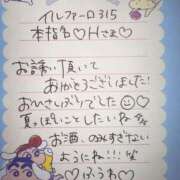 イルファーロ315
本指名♡Hさま♡
お誘い頂いて
ありがとうございました!
おひさしぶりでした☺♡
夏っぽいことしたいね
お酒、のみすぎない
ようにね!!!
♡ふうわ♡